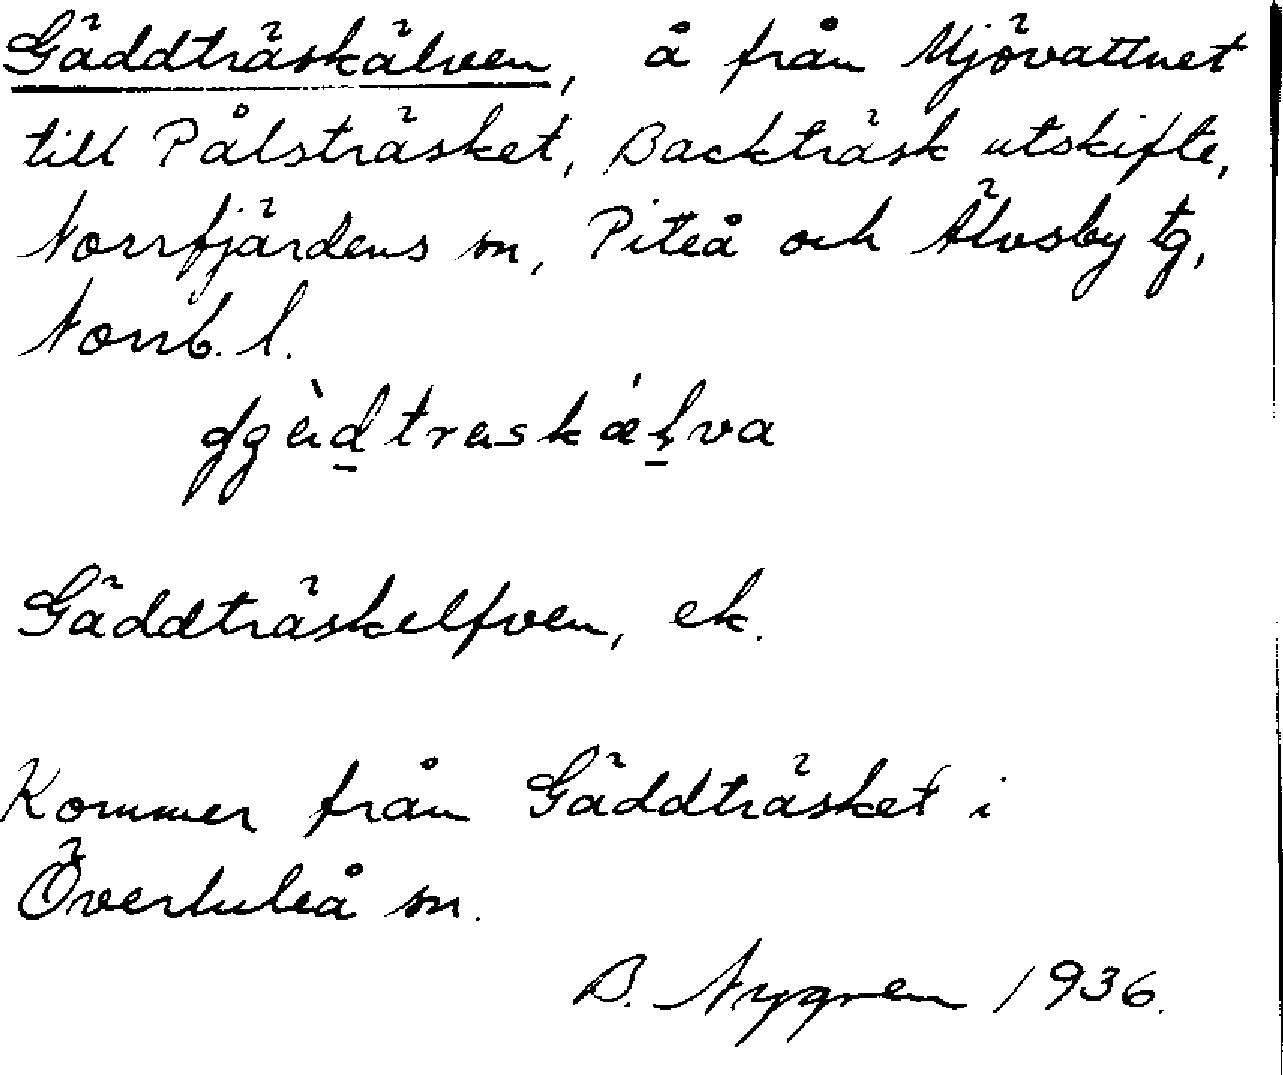 Gäddträskälven, å från Mjövattnet
till Pålsträsket, Backträsk utskifte,
Norrfjärdens sn, Piteå och Älvsby tg,
Norrb. l.
Gäddträskelfven, ek.
Kommer från Gäddträsket i
Överluleå sn.
B. Nygren 1936.